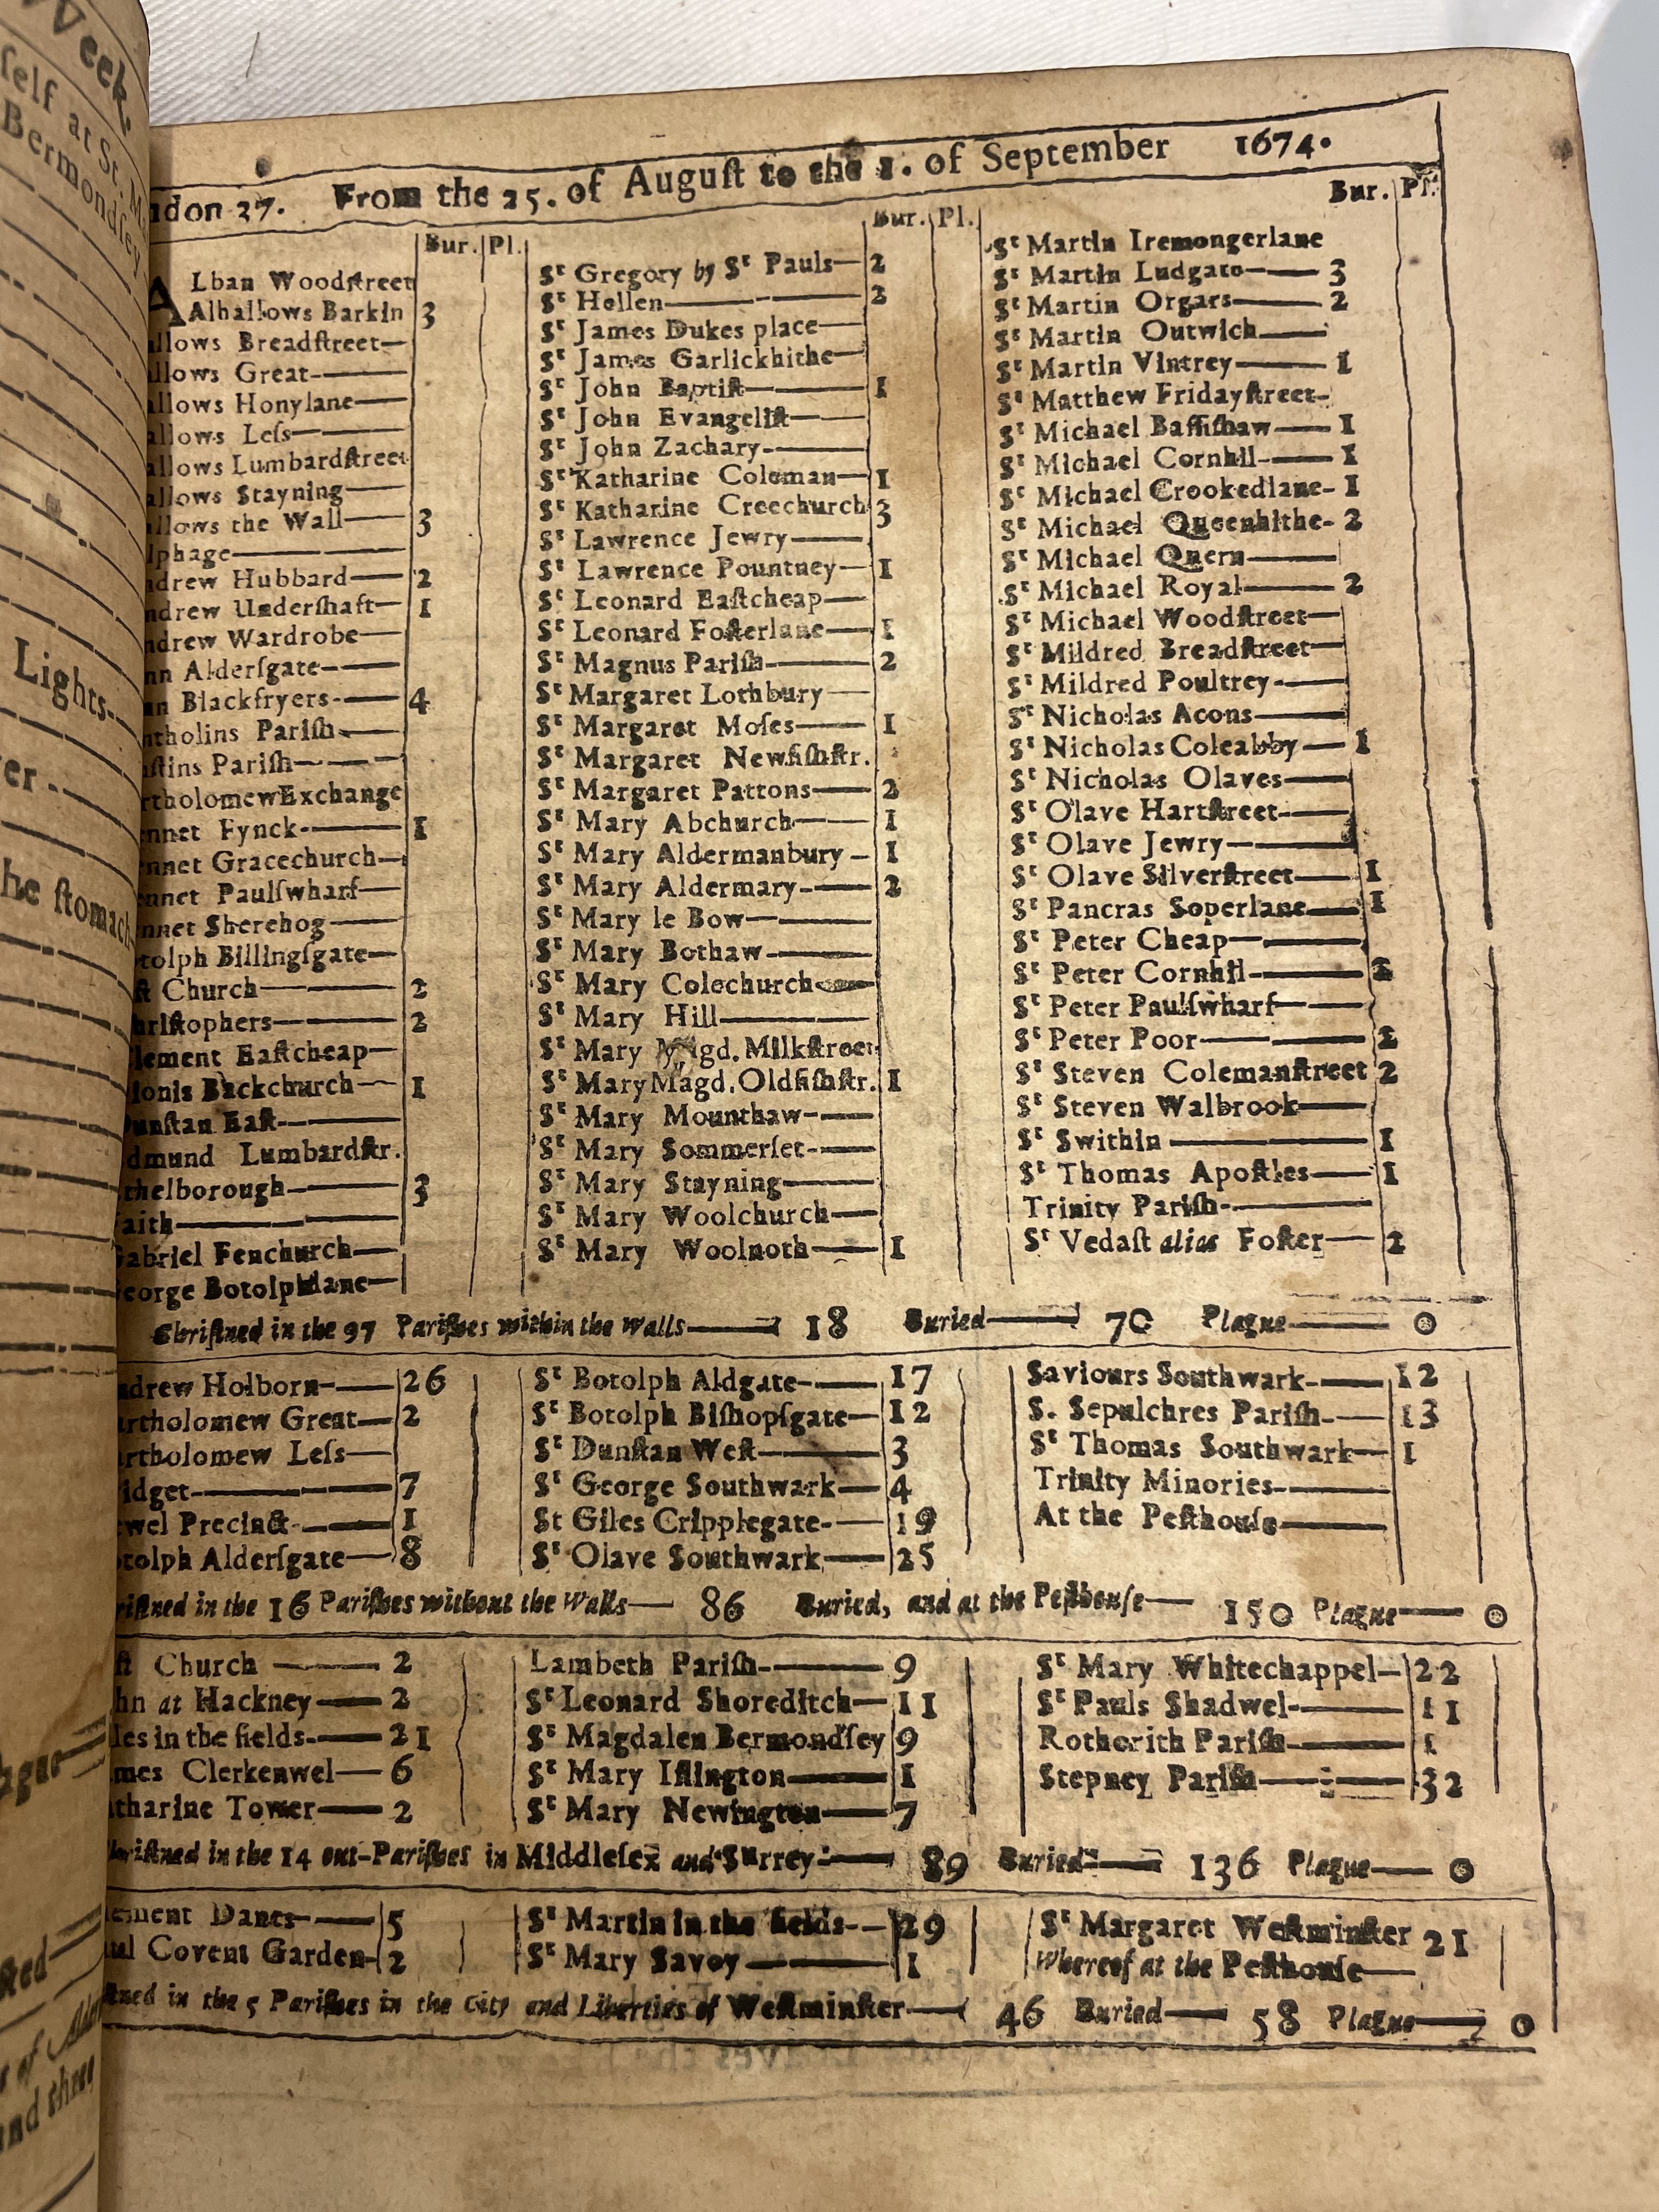 Week.
self at St. M
Bermondsey
Lights
er
he stomach
ague
sted
r of Alder
and three
don 27. From the 25. of August to the 1. of September 1674.
Bur. Pl.
ALban Woodstreet
Alhallows Barkin 3
allows Breadstreet
allows Great
allows Honylane
allows Less
allows Lumbardstreet
allows Stayning
allows the Wall 3
lphage
ndrew Hubbard 2
ndrew Undershaft 1
ndrew Wardrobe
nn Aldersgate
nn Blackfryers 4
ntholins Parish
stins Parish
rtholomewExchange
ennet Fynck 1
ennet Gracechurch
ennet Paulswharf
nnet Sherehog
tolph Billingsgate
st Church 2
hristophers 2
lement Eastcheap
ionis Backchurch 1
unstan East
dmund Lumbardstr.
thelborough 3
aith
abriel Fenchurch
eorge Botolphlane
Bur. Pl.
St Gregory by St Pauls 2
St Hellen 2
St James Dukes place
St James Garlickhithe
St John Baptist 1
St John Evangelist
St John Zachary
St Katharine Coleman 1
St Katharine Creechurch 3
St Lawrence Jewry
St Lawrence Pountney 1
St Leonard Eastcheap
St Leonard Fosterlane 1
St Magnus Parish 2
St Margaret Lothbury
St Margaret Moses 1
St Margaret Newfishstr.
St Margaret Pattons 2
St Mary Abchurch 1
St Mary Aldermanbury 1
St Mary Aldermary 2
St Mary le Bow
St Mary Bothaw
St Mary Colechurch
St Mary Hill
St Mary Magd. Milkstreet
St Mary Magd. Oldfishstr. 1
St Mary Mounthaw
St Mary Sommerset
St Mary Stayning
St Mary Woolchurch
St Mary Woolnoth 1
Bur. Pl.
St Martin Iremongerlane
St Martin Ludgate 3
St Martin Orgars 2
St Martin Outwich
St Martin Vintrey 1
St Matthew Fridaystreet
St Michael Bassishaw 1
St Michael Cornhil 1
St Michael Crookedlane 1
St Michael Queenhithe 2
St Michael Quern
St Michael Royal 2
St Michael Woodstreet
St Mildred Breadstreet
St Mildred Poultrey
St Nicholas Acons
St Nicholas Coleabby 1
St Nicholas Olaves
St Olave Hartstreet
St Olave Jewry
St Olave Silverstreet 1
St Pancras Soperlane 1
St Peter Cheap
St Peter Cornhil 2
St Peter Paulswharf
St Peter Poor 2
St Steven Colemanstreet 2
St Steven Walbrook
St Swithin 1
St Thomas Apostles 1
Trinity Parish
St Vedast alias Foster 2
Christned in the 97 Parishes within the walls 18 Buried 70 Plague 0
ndrew Holborn 26
artholomew Great 2
artholomew Less
idget 7
ewel Precinct 1
otolph Aldersgate 8
St Botolph Aldgate 17
St Botolph Bishopsgate 12
St Dunstan West 3
St George Southwark 4
St Giles Cripplegate 19
St Olave Southwark 25
Saviours Southwark 12
S. Sepulchres Parish 13
St Thomas Southwark 1
Trinity Minories
At the Pesthouse
ristned in the 16 Parishes without the Walls 86 Buried, and at the Pesthouse 150 Plague 0
st Church 2
hn at Hackney 2
les in the fields 21
mes Clerkenwel 6
tharine Tower 2
Lambeth Parish 9
St Leonard Shoreditch 11
St Magdalen Bermondsey 9
St Mary Islington 1
St Mary Newington 7
St Mary Whitechappel 22
St Pauls Shadwel 11
Rotherith Parish 1
Stepney Parish 32
hristned in the 14 out-Parishes in Middlesex and Surrey 89 Buried 136 Plague 0
lement Danes 5
aul Covent Garden 2
St Martin in the fields 29
St Mary Savoy 1
St Margaret Westminster 21
Whereof at the Pesthouse
stned in the 5 Parishes in the City and Liberties of Westminster 46 Buried 58 Plague 0